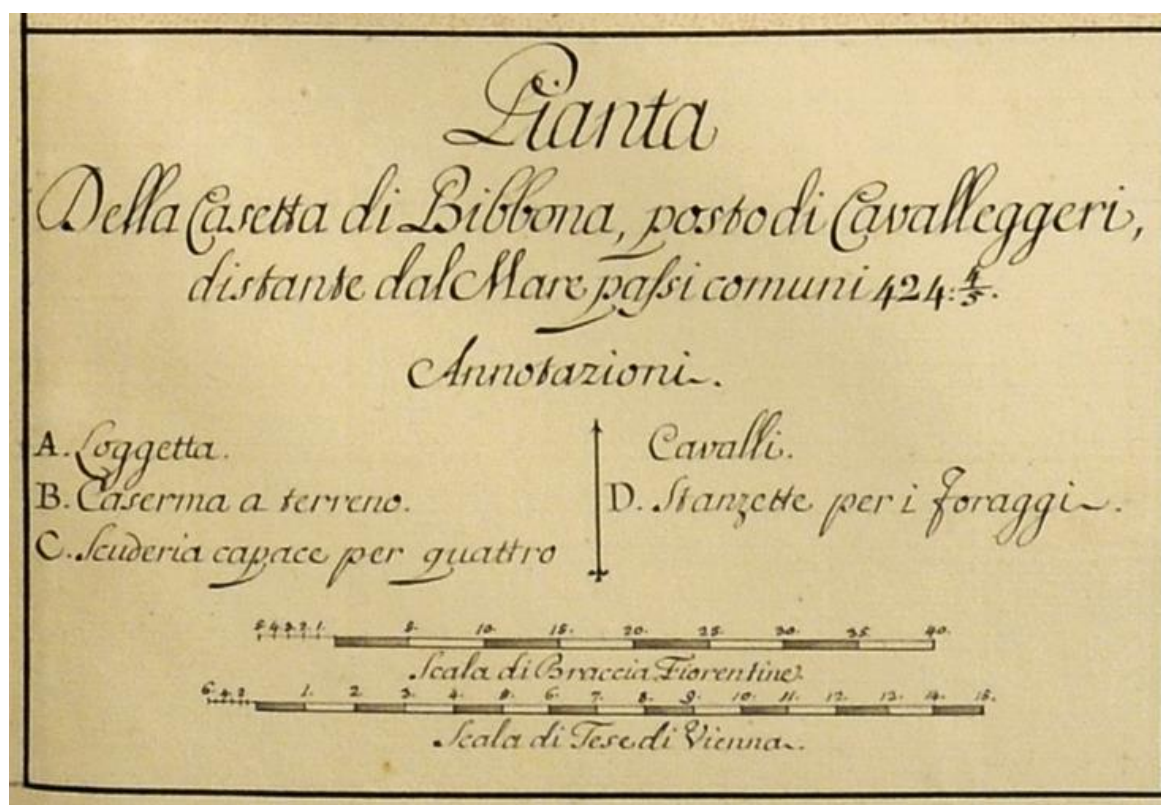 Pianta
Della Casetta di Bibbona, posto di Cavalleggeri,
distante dal Mare passi comuni 424:4/5.
Annotazioni.
A. Loggetta.
B. Caserma a terreno.
C. Scuderia capace per quattro
Cavalli.
D. Stanzette per i foraggi.
5. 4. 3. 2. 1. 5. 10. 15. 20. 25. 30. 35. 40.
Scala di Braccia Fiorentine.
6. 4. 2. 1. 2. 3. 4. 5. 6. 7. 8. 9. 10. 11. 12. 13. 14. 15.
Scala di Tese di Vienna.